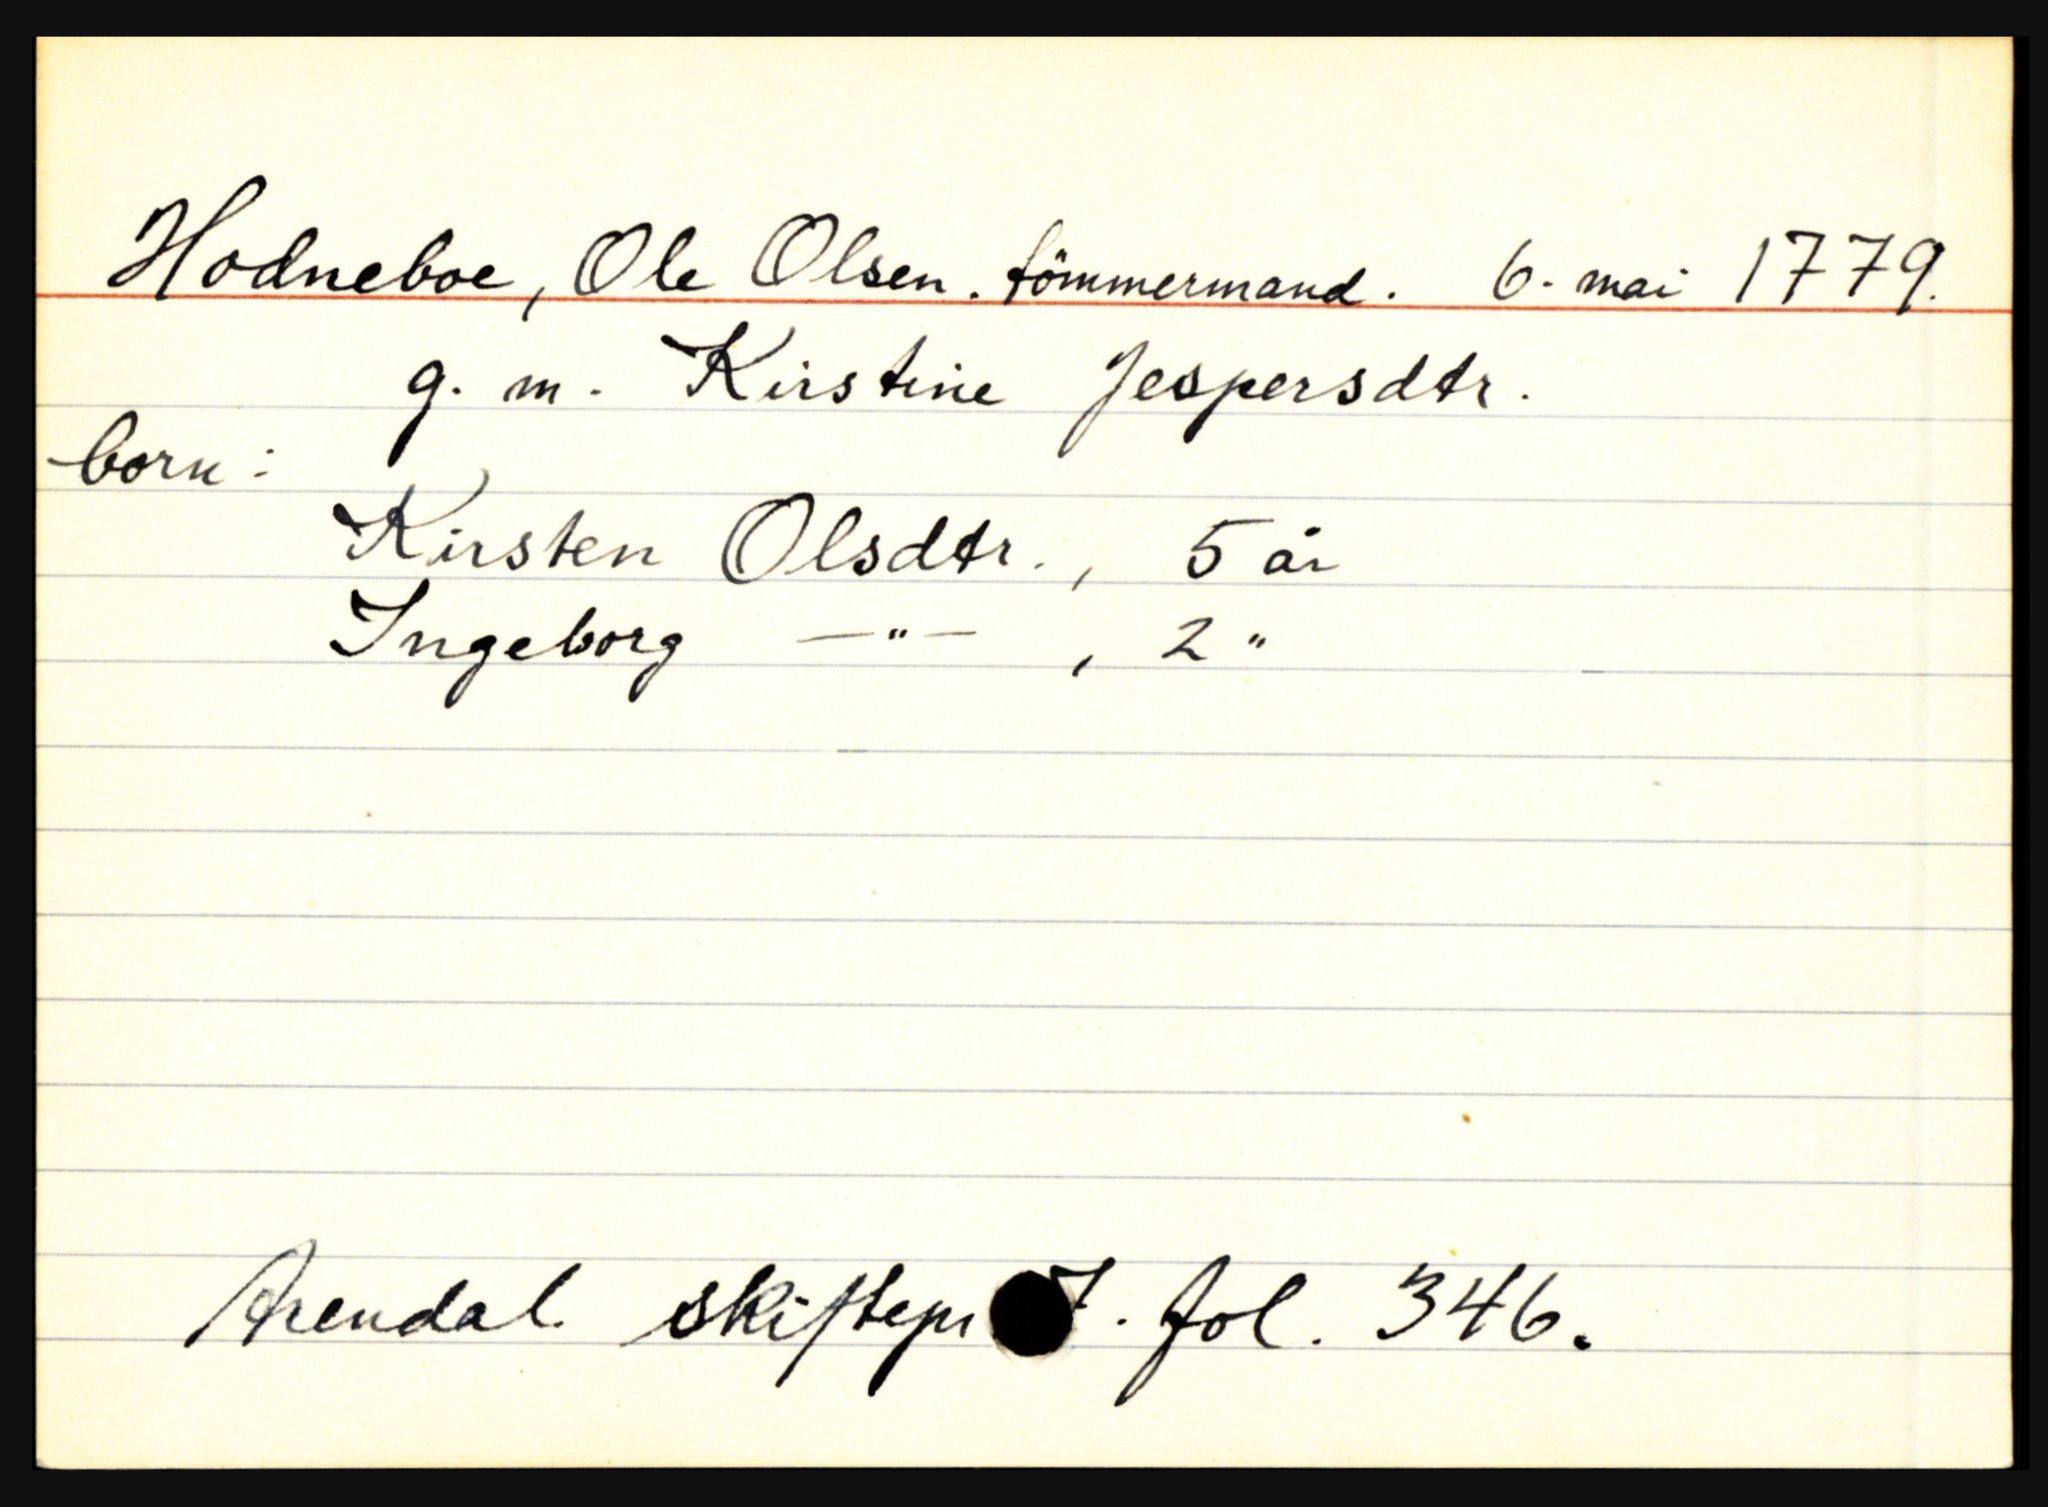 Hodneboe, Ole Olsen. tömmermand. 6. mai 1779.
g. m. Kirstine Jespersdtr.
born:
Kirsten Olsdtr., 5 år
Ingeborg —"— , 2 "
Arendal. skiftepr 7. fol. 346.